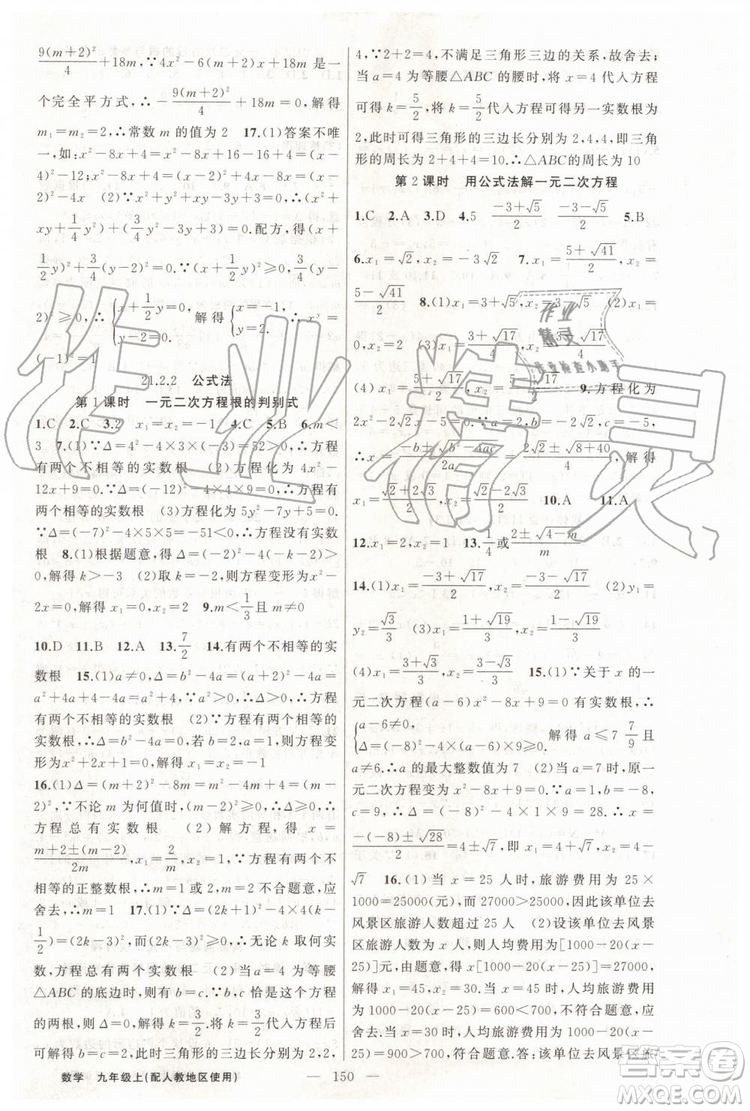 9(m+2)²/4+18m,∵4x²-6(m+2)x+18m是一
个完全平方式,∴-9(m+2)²/4+18m=0,解得
m₁=m₂=2,∴常数m的值为2 17.(1)答案不唯
一,如:x²-8x+4=x²-8x+16-16+4=(x-
4)²-12;x²-8x+4=(x-2)²-4x;x²-8x+4=
(x-2)²-4x (2)x²+y²+xy-4y+4=0,(x²+
xy+1/4y²)+(3/4y²-3y+3)+1=0.配方,得(x+
1/2y)²+3/4(y-2)²=0,∵(x+1/2y)²≥0,(y-
2)²≥0,∴{x+1/2y=0, y-2=0, 解得{x=-1, y=2
21.2.2 公式法
第1课时 一元二次方程根的判别式
1.C 2.C 3.2 x₁=x₂=-1 4.C 5.B 6.m<
3 7.(1)∵Δ=4²-4×3×(-3)=52>0,∴方程
有两个不相等的实数根 (2)方程化为4x²-
12x+9=0,∵Δ=(-12)²-4×4×9=0,∴方程
有两个相等的实数根 (3)方程化为5y²-7y+5=0,
∴Δ=(-7)²-4×5×5=-51<0,∴方程没有实数
根 8.(1)根据题意,得Δ=(-2)²-4(-k-2)>
0,解得k>-3 (2)取k=-2,则方程变形为x²-
2x=0,解得x₁=0,x₂=2 9.m<1/3且m≠0
10.D 11.B 12.A 13.7/2 14.有两个不相等的实
数根 15.(1)a≠0,Δ=b²-4a=(a+2)²-4a=
a²+4a+4-4a=a²+4,∵a²>0,∴Δ>0,∴方程
有两个不相等的实数根 (2)∵方程有两个相等的
实数根,∴Δ=b²-4a=0,若b=2,a=1,则方程变
形为x²+2x+1=0,解得x₁=x₂=-1
16.(1)Δ=(m+2)²-8m=m²-4m+4=(m-
2)²,∵不论m为何值时,(m-2)²≥0,∴Δ≥0,∴
方程总有实数根 (2)解方程,得x=
m+2±(m-2)/2m,x₁=2/m,x₂=1,∵方程有两个不相等
的正整数根,∴m=1或2,m=2不合题意,应
舍去,∴m=1 17.(1)∵Δ=(2k+1)²-4×4(k-
1/2)=4k²-12k+9=(2k-3)²≥0,∴无论k取何实
数,方程总有两个实数根 (2)当a=4为等腰
△ABC的底边时,有b=c,∵b、c恰是这个方程的
两根,则(2k-3)²=0,解得k=3/2,将k=3/2代入方程后可
以解得b=c=2,即三角形的三边长分别为2,2,
4,∵2+2=4,不满足三角形三边的关系,故舍去;
当a=4为等腰△ABC的腰时,将x=4代入方程
可得k=5/2,将k=5/2代入方程可得另一实数根为
2,此时可得三角形的三边长分别为2,4,4,即三角
形的周长为2+4+4=10∴△ABC的周长为10
第2课时 用公式法解一元二次方程
1.C 2.A 3.D 4.5 (-3+√5)/2 (-3-√5)/2 5.B
6.x₁=√2,x₂=-√2 7.x₁=(5+√41)/2,x₂=
(5-√41)/2 8.(1)x₁=3+√5,x₂=3-√5 (2)x₁=
0,x₂=
9.方程化为
2x²-
,解得
x₁=(√2+2√3)/2,x₂=(√2-2√3)/2 10.A 11.A
12.x₁=2,x₂=-1 13.1/4或(2±√(4-m))/m
14.(1)x₁=(-3+√19)/2,x₂=(-3-√19)/2 (2)y₁=
y₂=√3/3 (3)x₁=(1+√19)/3,x₂=(1-√19)/3
(4)x₁=(3+√3)/3,x₂=(3-√3)/3 15.(1)∵关于x的一
元二次方程(a-6)x²-8x+9=0有实数根,∴
{a-6≠0, 解得a≤7 7/9且
a≠6,∴a的最大整数值为7 (2)当a=7时,方程
变形为x²-8x+9=0,Δ=(-8)²-4×1×9=28,∴x=
(-(-8)±√28)/2,∴x₁=4+√7,x₂=4-
√7 16.(1)当x=25人时,旅游费用为25×
1000=25000(元),而25000<27000,因此该单位去
风景区旅游人数超过25人 (2)设该单位去风景
区旅游人数为x人,则人均费用为[1000-20(x-
25)]元,由题意,得x[1000-20(x-25)]=27000,
整理,得x²-75x+1350=0,解得x₁=45,x₂=30.
当x=45时,人均旅游费用为1000-20(x-
25)=600<700,不符合题意,应舍去;
当x=30时,人均旅游费用为1000-20(x-
25)=900>700,符合题意.答:该单位去
数学 九年级上(配人教地区使用) — 150 —
作业精灵
作业
精灵
作业检查小助手
答案圈
MXQE.COM